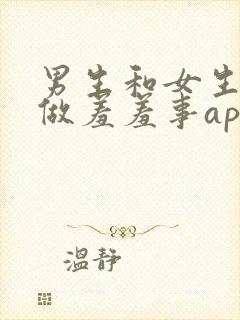 男生和女生
做羞羞事ap
温静